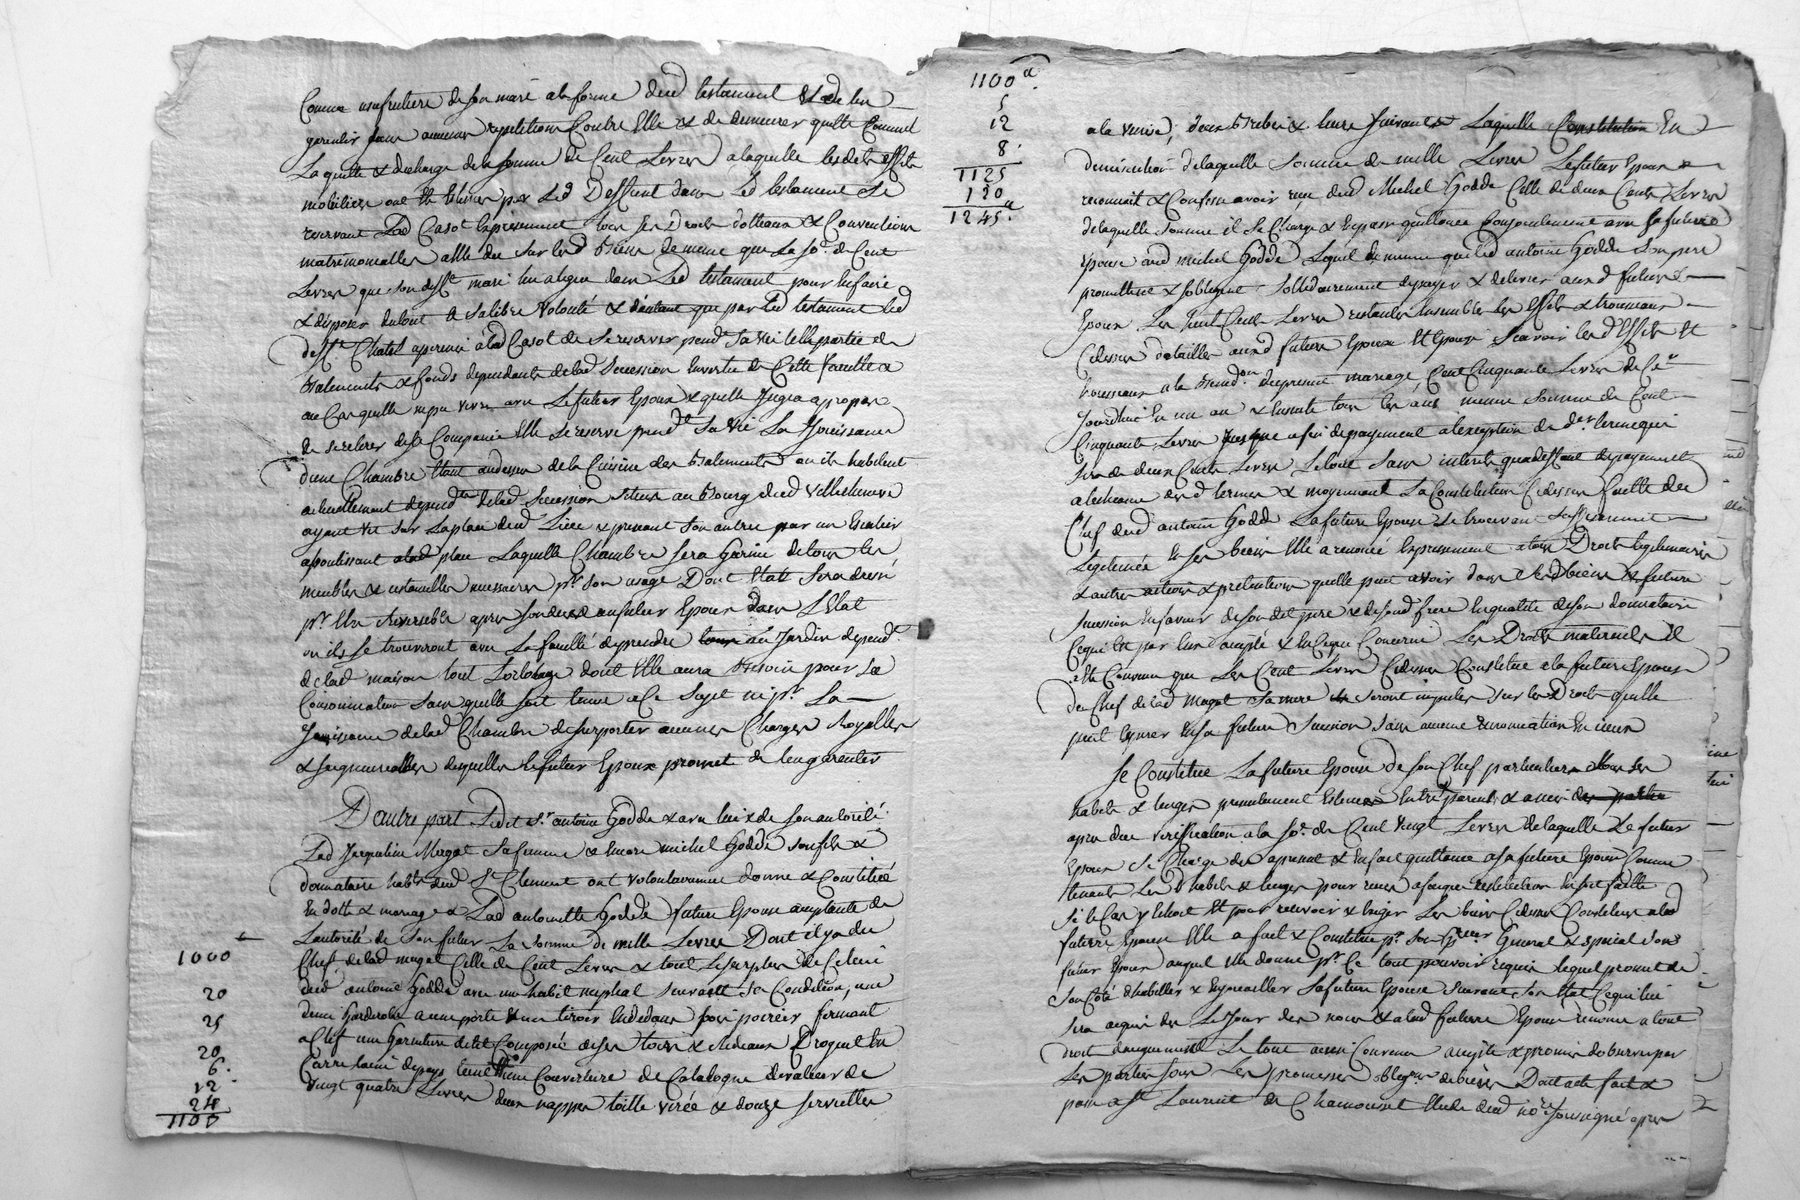 Comme usufruitiere de son mari a la forme dud testament & de len
garentir sans aucunes repetitions Contre Elle & de demeurer quitte Comme
La quitte & decharge de la somme de Cent Livres a laquelle lesdets effets
mobiliers ont Ete Estimes par led Deffunt dans led testament Se
reservant Lad Casot Expressement tous ses Droits dotteaux & Conventions
matrimonialles a Elle dus sur lesd biens de meme que la so.e de Cent
Livres que son deff.t mari lui a legue dans led testament pour En faire
& disposer du tout a sa libre volonté & d'autant que par led testament led
deff.t Chatel a permis a lad Casot de se reserver pend.t sa vie telle partie de
Batements & fonds dependants de lad Succession En vertu de Cette faculté &
au Cas quelle ne peu vivre avec Le futeur Epoux & quelle Jugea a propos
de se retirer de sa Compagnie Elle se reserve pend.t Sa vie La Jouissance
d'une Chambre Etant audessus de la Cuisine des Batements ou ils habitent
actuellement depend.te de lad Succession situes au Bourg dud Villecheneve
ayant vue sur la place dud Lieu & prenant son entree par un Escalier
aboutissant a lad place Laquelle Chambre sera Garnie de tous les
meubles & ustancilles necessaires p.r son usage Dont Etat Sera dressé
p.r Etre Reversible apres son deces au futeur Epoux dans L'Etat
ou ils se trouveront avec La faculté de prendre au Jardin depend.t
de lad maison tout L'ortolage dont Elle aura Besoin pour sa
Consommation sans quelle soit tenue a Ce Sujet ni p.r La
Jouissance de lad Chambre de supporter aucunes Charges Royalles
& seigneurialles desquelles le futeur Epoux promet de l'en garentir
D'autre part Ledit s.r antoine Godde & avec lui & de son autorité
Lad Jacqueline Magat sa femme & Encore michel Godde son fils &
donnataire habt.s dud St Clement ont volontairement donné & Constitué
En dotte & mariage a Lad antoinette Godde future Epouse acceptante de
L'autorité de son futur La somme de mille Livres Dont il y a du
Chef de lad magat Celle de Cent Livres & tout Le surplus de Celui
dud antoine Godde avec un habit nuptial suivant sa Condition, une
deux Garderobe a une porte & un tiroir audedans bois poirier fermant
a Clef une Garniture de lit Composée de ses tours & rideaux Droguet En
Carre laine de pays une Couverture de Catalogne de valeur de
vingt quatre Livres deux nappes toille virée & douze serviettes
1000 #
20
25
20
6.
12
24
1100
1100 #.
5
12
8.
1125
120
1245. #
a la venise, deux & leurs suivants Laquelle Constitution En
deminution de laquelle Somme de mille Livres Le futeur Epoux
reconnait & Confesse avoir reçu dud Michel Godde Celle de deux Cents Livres
de laquelle somme il se Charge & En passe quittance Conjointement avec sa future
Epouse aud michel Godde Lequel de meme que led antoine Godde son pere
promettent & s'obligent sollidairement de payer & delivrer aud futeur
Epoux Les huit Cents Livres restants Ensemble les Effets & trousseaux
Cidessus detailles aud futeurs Epoux Et Epouse Scavoir lesd Effets Et
trousseaux a la Bened.on du present mariage, Cent Cinquante Livres de Ce
Jourdhui En un an & Ensuite tous les ans meme somme de Cent
Cinquante Livres Jusque a fin de payement a l'exeption du der. terme qui
Sera de deux Cents Livres, Le tout sans interets qu'a deffaut de payement
a lecheance desd termes & moyennant La Constitution Cidessus faitte du
Chef dud antoine Godde La future Epouse Se trouvant suffisamment
Legitimée En ses biens Elle a renoncé Expressement a tous Droits Legitimaires
& autres actions & pretentions quelle peut avoir dans lesd biens & future
succession En faveur de son dit pere & de sond frere En qualité de son donnataire
Ce qui Et par Eux accepté & En Ce qui Concerne Les Droits maternels il
Est Convenu que Les Cent Livres Cidessus Constitue a la future Epouse
du Chef de lad Magat sa mere seront imputes sur lesd Droits quelle
peut Esperer En sa future succession sans aucune renonciation En iceux
Se Constitue La future Epouse de son Chef particulier tous ses
habits & linges presentement Estimes Entre parents & amis
apres due verification a la so.e de Cent vingt Livres de laquelle Le futur
Epoux Se Charge des a present & En fait quittance a sa future Epouse Comme
tenants Lesd habits & linges pour reçus a Jouque restitution En soit faitte
Si le Cas y Echoit Et pour recevoir & Exiger Les biens Cidessus Constitues a lad
future Epouse Elle a fait & Constitue p.r son Pr.eur General & special son
futur Epoux auquel Elle donne p.r Ce tout pouvoir requis lequel promet de
Son Coté d'habiller & Enjoailler Sa future Epouse suivant son Etat Ce qui lui
sera acquis des Le Jour des noces & a lad future Epouse renonce a tout
droit d'augment Le tout ainsi Convenu accepté & promis d'observer par
Les parties sous Les promesses oblig.ons de biens Dont acte fait &
passé a St Laurent de Chamousset Etude dud no.re soussigné apres